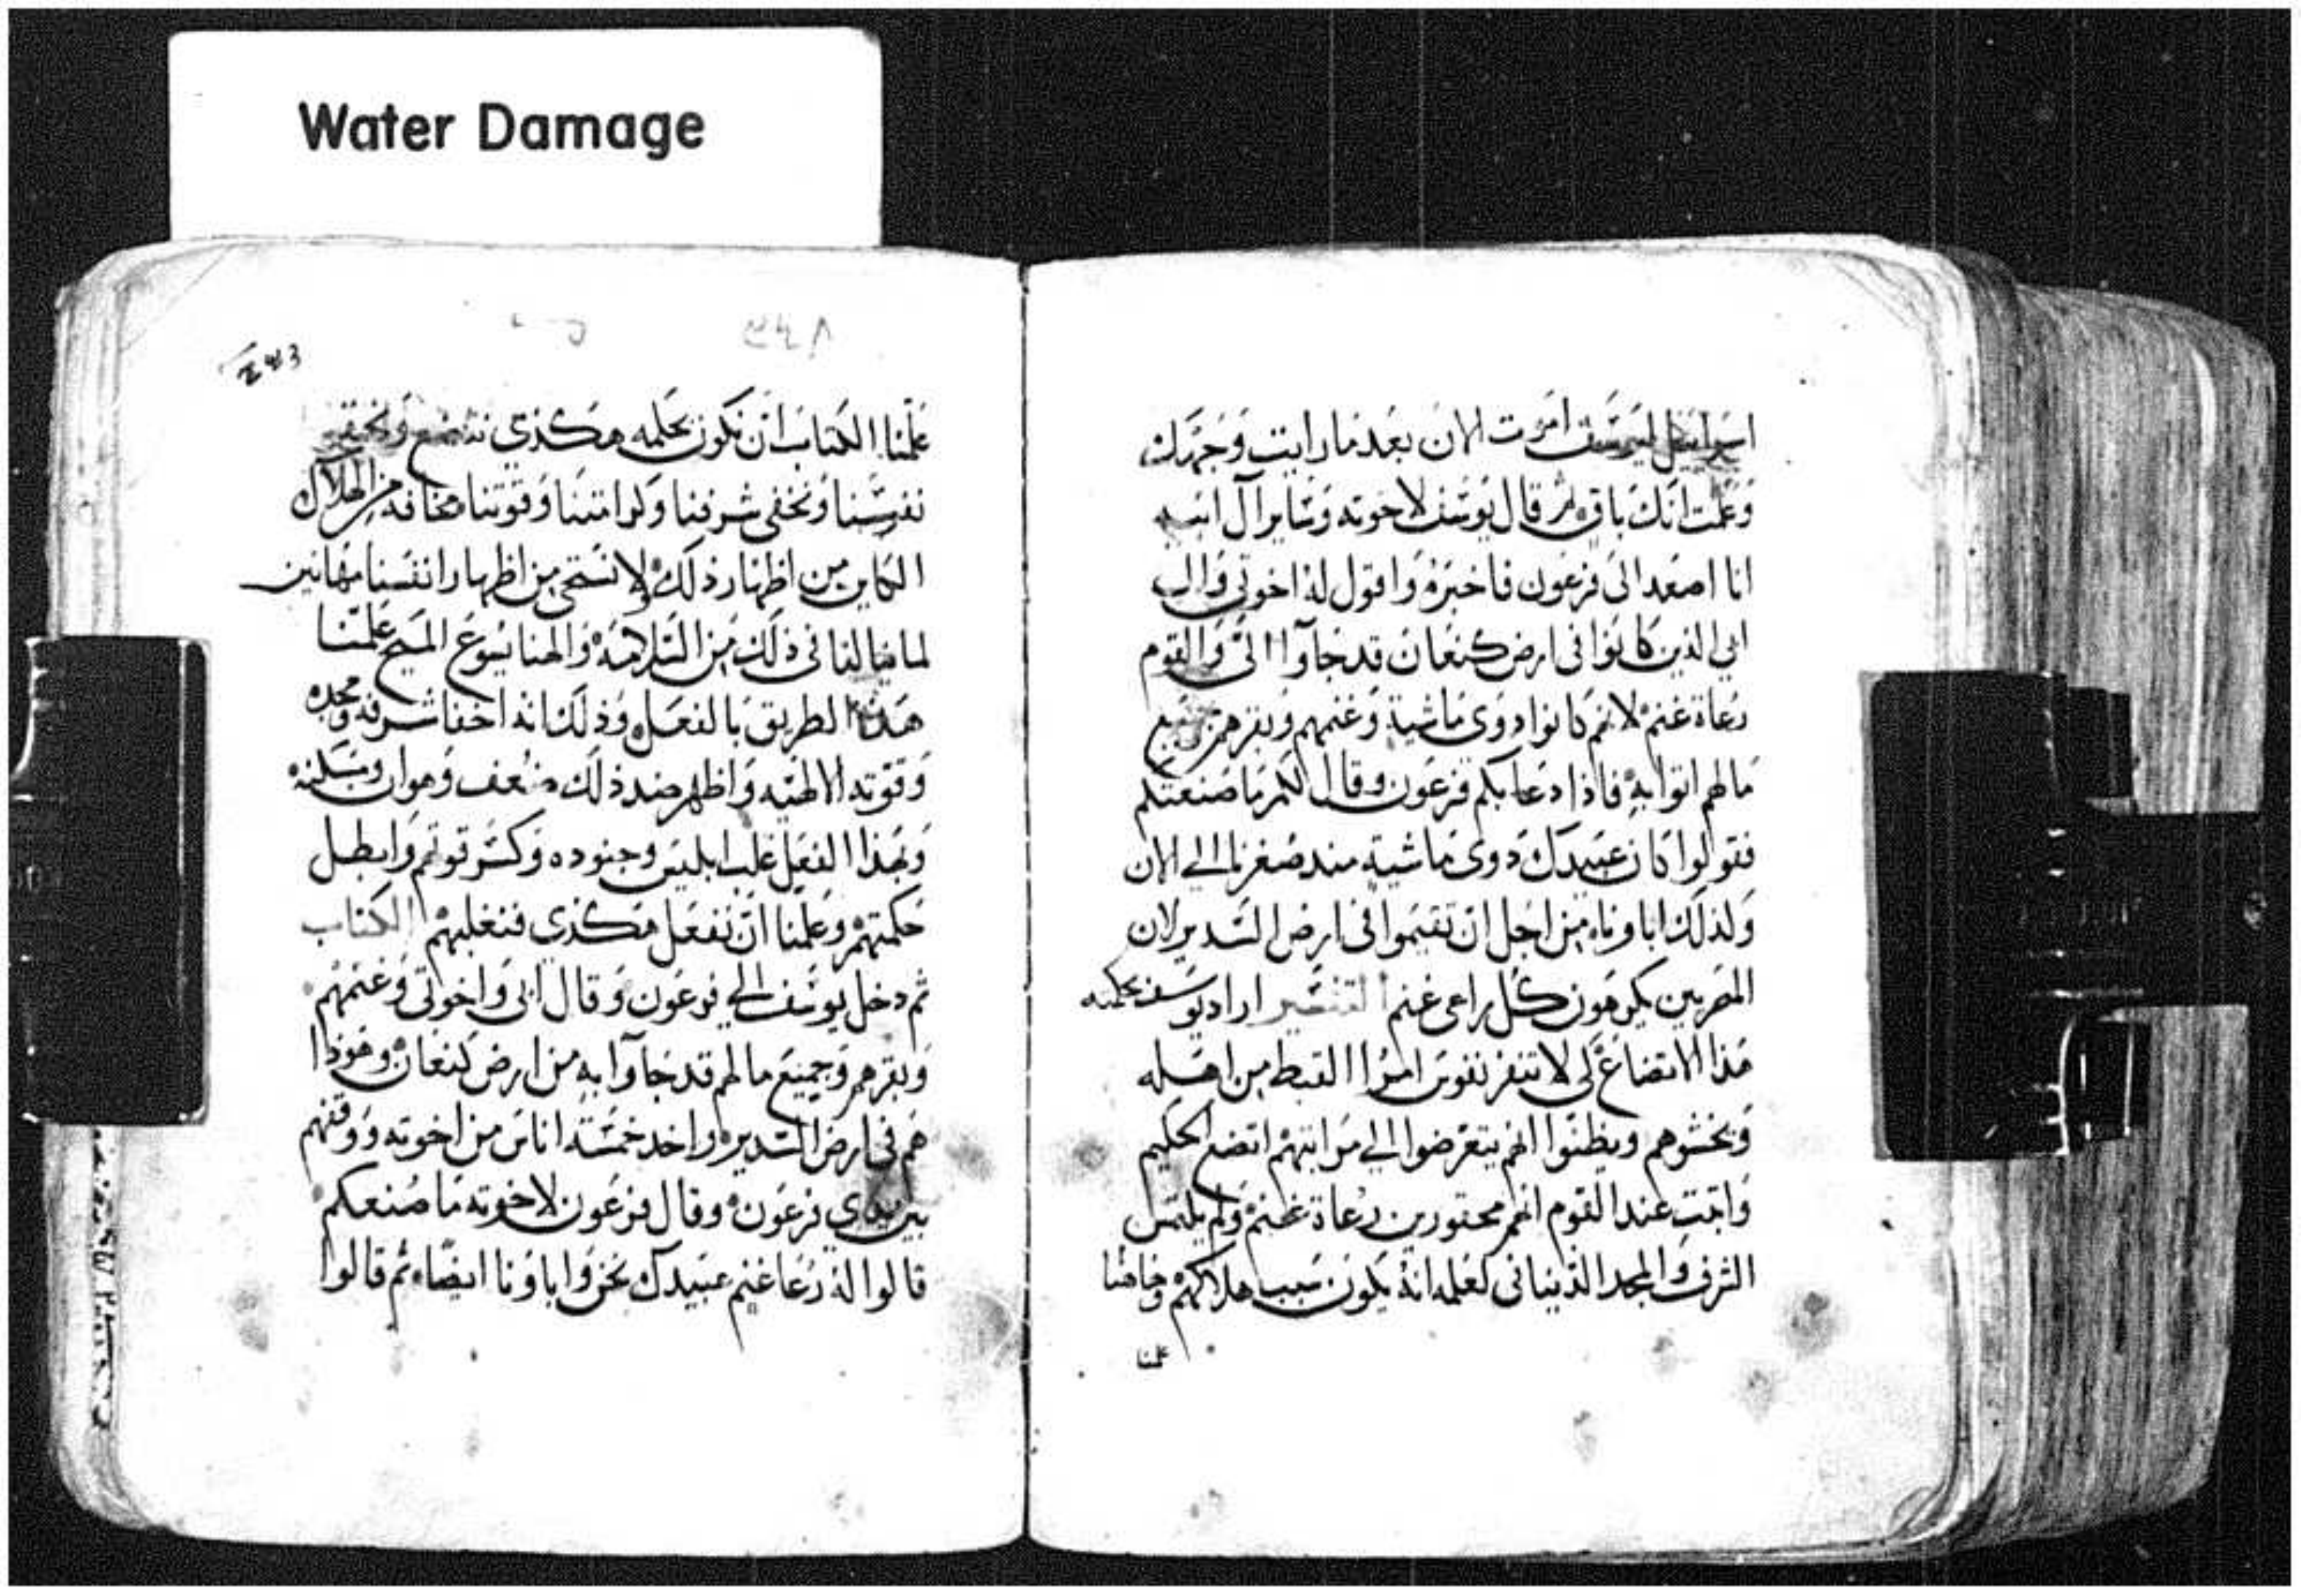 Water Damage
اسراييل ليوسف اموت الان بعد ما رايت وجهك
وعلمت انك باق ثم قال يوسف لاخوته وساير آل ابيه
انا اصعد الى فرعون فاخبره واقول له اخوتي وال
ابي الذين كانوا في ارض كنعان قد جاوا الىّ والقوم
رعاة غنم لانهم كانوا دوى ماشية وغنمهم وبقرهم وجميع
مالهم اتوا به فاذا دعا بكم فرعون وقال لكم ما صنعتكم
فقولوا كان عبيدك دوى ماشية مند صغرنا الي الان
ولذلك اباوناه من اجل ان تقيموا في ارض السدير لان
المصريين يكرهون كل راعي غنم التفسير اراد يوسف بحكمته
هذا الاتضاع لكى لا تنفر نفوس امرا القبط من اهله
ويخشوهم ويظنوا انهم يتعرضوا الي مراتبهم اتضع الحكيم
واتبت عند القوم انهم محقورين رعاة غنم ولم يلتمس
الشرف والمجد الدنياني لعلمه انه يكون سبب هلاكهم وهاهنا
علمنا
243
علمنا الكتاب ان نكون بحكمه هكذي نتضع ونحقر
نفوسنا ونخفى شرفنا وكرامتنا وقوتنا مخافه من الهلاك
الكاين من اظهار ذلك ولا نستحى من اظهار انفسنا مهانين
لما ينالنا في ذلك من السلامه والهنا يسوع المسيح علمنا
هذا الطريق بالفعل وذلك انه اخفا شرفه ومجده
وقوته الالهيه واظهر ضد ذلك ضعف وهوان ومسكنه
وبهذا الفعل غلب ابليس وجنوده وكسر قوتهم وابطل
حكمتهم وعلمنا ان نفعل هكذي فنغلبهم الكتاب
ثم دخل يوسف الي فرعون وقال ابي واخوتي وغنمهم
وبقرهم وجميع ما لهم قد جاوا به من ارض كنعان وهوذا
هم في ارض السدير واخد خمسة اناس من اخوته ووقفهم
بين يدي فرعون وقال فرعون لاخوته ما صنعتكم
قالوا له رعا غنم عبيدك نحن واباونا ايضا ثم قالوا